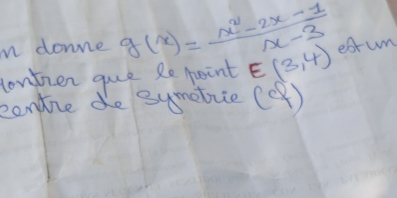 n donne g(x) = x² - 2x - 1 / x - 3
ontrer que le point E (3,4) est un
centre de symetrie (Cf)